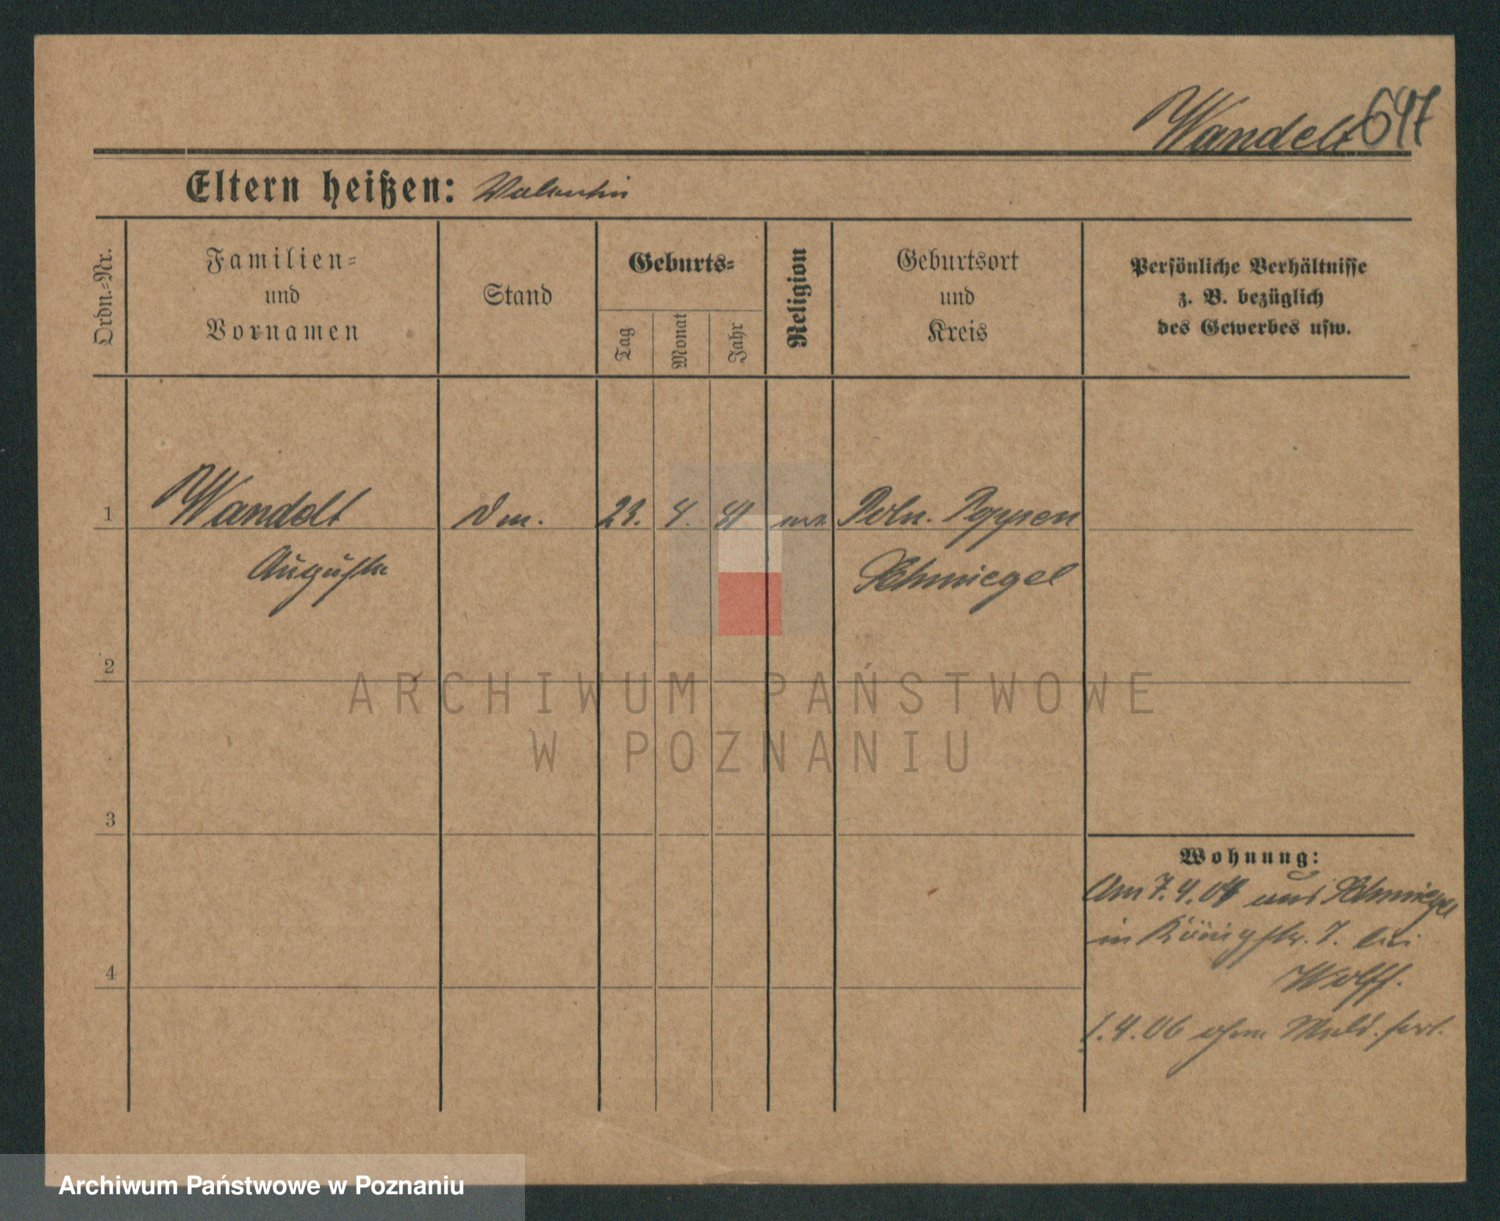 Wandelt 647
Eltern heißen: Valentin
Ordn.-Nr.
Familien-
und
Vornamen
Stand
Geburts-
Tag
Monat
Jahr
Religion
Geburtsort
und
Kreis
Persönliche Verhältnisse
z. B. bezüglich
des Gewerbes usw.
1 Wandelt 23. 4. Poln. Poppen
Auguste Schmiegel
2
3
4
Wohnung:
Am 7.4.04 aus Schmiegel
in Königstr. 7. bei
Wolff.
1.4.06 ohne Meld. fort.
ARCHIWUM PAŃSTWOWE
W POZNANIU
Archiwum Państwowe w Poznaniu